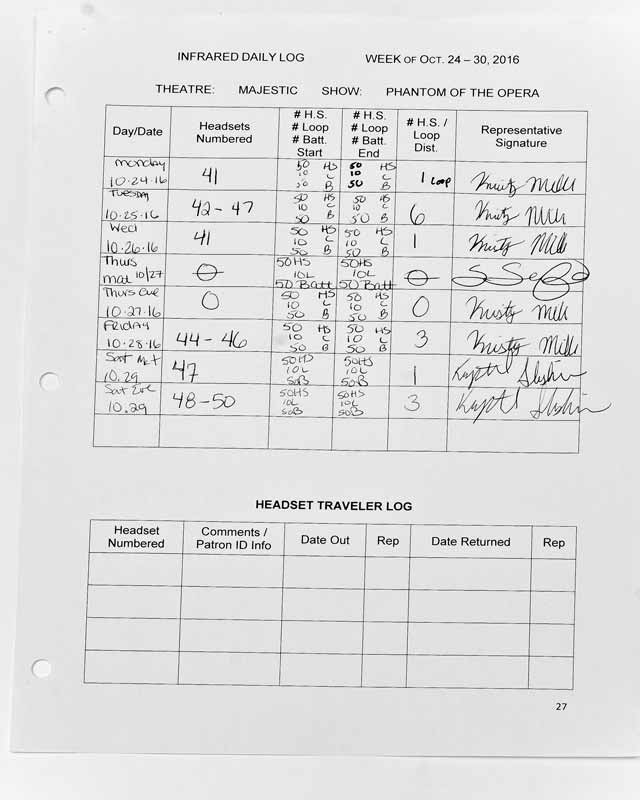 INFRARED DAILY LOG WEEK OF OCT. 24 – 30, 2016
THEATRE: MAJESTIC SHOW: PHANTOM OF THE OPERA
Day/Date
Headsets
Numbered
# H.S.
# Loop
# Batt.
Start
# H.S.
# Loop
# Batt.
End
# H.S. /
Loop
Dist.
Representative
Signature
Monday
10.24.16
41
50 HS
10 L
50 B
50 HS
10 L
50 B
1 Loop
Kristy Mills
Tuesday
10.25.16
42 – 47
50 HS
10 L
50 B
50 HS
10 L
50 B
6
Kristy Mills
Wed
10.26.16
41
50 HS
10 L
50 B
50 HS
10 L
50 B
1
Kristy Mills
Thurs
mat 10/27
0
50 HS
10L
50 Batt
50HS
10L
50 Batt
0
Thurs Eve
10.27.16
0
50 HS
10 L
50 B
50 HS
10 L
50 B
0
Kristy Mills
Friday
10.28.16
44 – 46
50 HS
10 L
50 B
50 HS
10 L
50 B
3
Kristy Mills
Sat Mat
10.29
47
50HS
10L
50B
50HS
10L
50B
1
Sat Eve
10.29
48 – 50
50HS
10L
50B
50HS
10L
50B
3
HEADSET TRAVELER LOG
Headset
Numbered
Comments /
Patron ID Info
Date Out
Rep
Date Returned
Rep
27